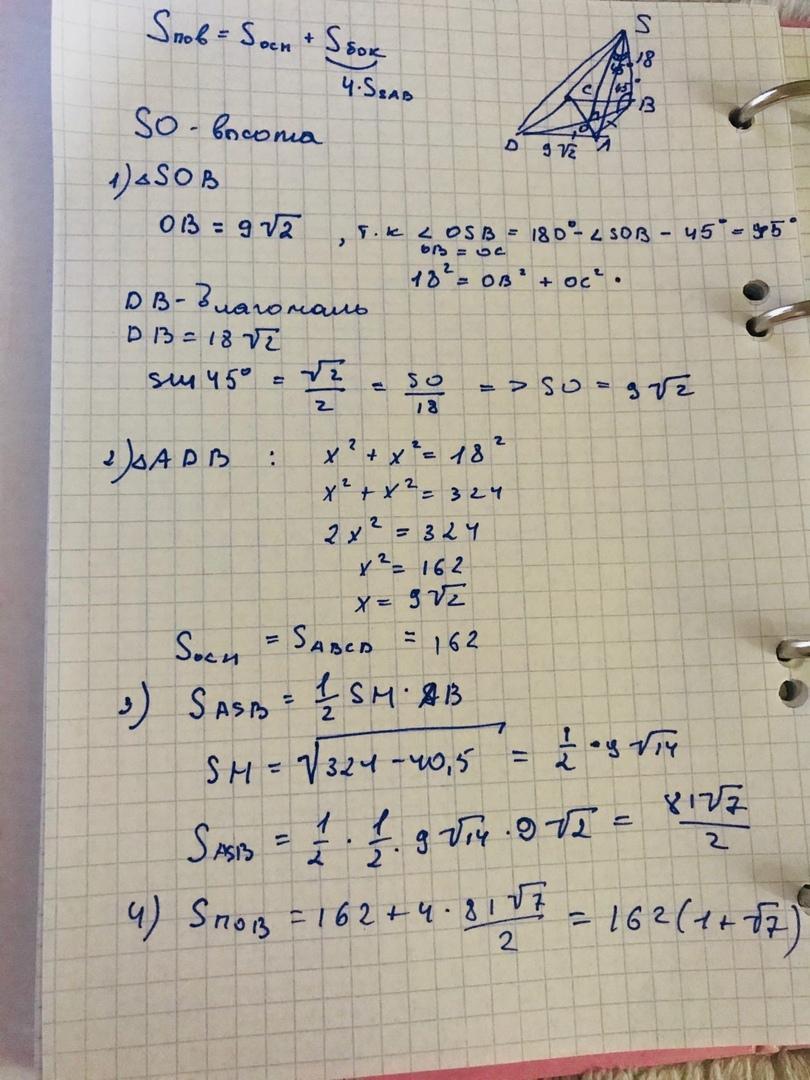 Sпов = Sосн + Sбок
4·SSAB
SO - высота
S
18
45°
45°
C
B
O
x
D
9√2
A
1) △SOB
OB = 9√2 , т.к ∠OSB = 180° - ∠SOB - 45° = 45°
OB = OC
18² = OB² + OC².
DB - диагональ
DB = 18√2
sin 45° = √2/2 = SO/18 => SO = 9√2
2) △ADB : x² + x² = 18²
x² + x² = 324
2x² = 324
x² = 162
x = 9√2
Sосн = SABCD = 162
3) SASB = 1/2 SH · AB
SH = √(324 - 40,5) = 1/2 · 9√14
SASB = 1/2 · 1/2 · 9√14 · 9√2 = 81√7/2
4) Sпов = 162 + 4 · 81√7/2 = 162(1 + √7)